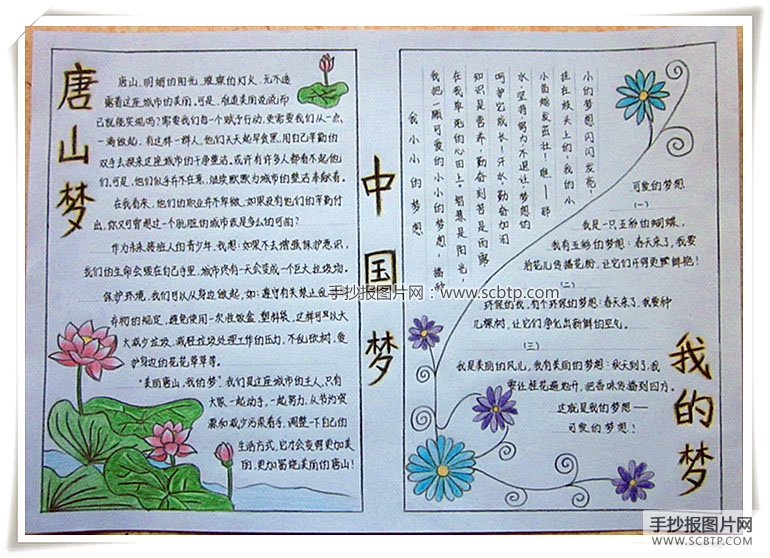 唐山梦
唐山,明媚的阳光,璀璨的灯火,无不透
露着这座城市的美丽。可是,难道美丽说说而
已就能实现吗?需要我们每一个赋予行动,更需要我们从一点、
一滴做起,有这样一群人,他们天天起早贪黑,用自己辛勤的
双手去换来这座城市的干净整洁,或许有许多人都看不起他
们,可是,他们似乎并不在意,继续默默为城市的整洁奉献着。
在我看来,他们的职业并不卑微,如果没有他们的辛勤付
出,你又可曾想过一个肮脏的城市该是多么的可怕?
作为未来接班人的青少年,我想:如果不去增强保护意识,
我们的生命会毁在自己手里,城市终有一天会变成一个巨大垃圾场。
保护环境,我们可以从身边做起,如:遵守有关禁止
弃物的规定,避免使用一次性饭盒、塑料袋,这样可以大
大减少垃圾,减轻垃圾处理工作的压力,不乱砍树,爱
护身边的花花草草等。
“美丽唐山,我的梦”。我们是这座城市的主人,只有
大家一起动手,一起努力,从节约资
源和减少污染着手,调整一下自己的
生活方式,它才会变得更加美
丽,更加富饶美丽的唐山!
中国梦
小的梦想闪闪发亮!
挂在枝头上的,我的小
小苗越发茁壮!瞧——那
水,坚持努力不退让梦想的
呵护它成长!汗水勤奋如河
知识是营养,勤奋刻苦是雨露
在我单纯的心田上。智慧是阳光,
我把一颗可爱的小小的梦想,播种
我小小的梦想
可爱的梦想
(一)
我是一只五彩的蝴蝶,
我有五彩的梦想:春天来了,我要
给花儿传播花粉,让它们开得更鲜艳!
(二)
环保的我,有个环保的梦想:春天来了,我要种
几棵树,让它们净化出新鲜的空气。
(三)
我是美丽的风儿,我有美丽的梦想:秋天到了,我
要让桂花遍地开,把香味传播到四方。
这就是我的梦想——
可爱的梦想!
我的梦
手抄报图片网:www.scbtp.com
手抄报图片网
WWW.SCBTP.COM